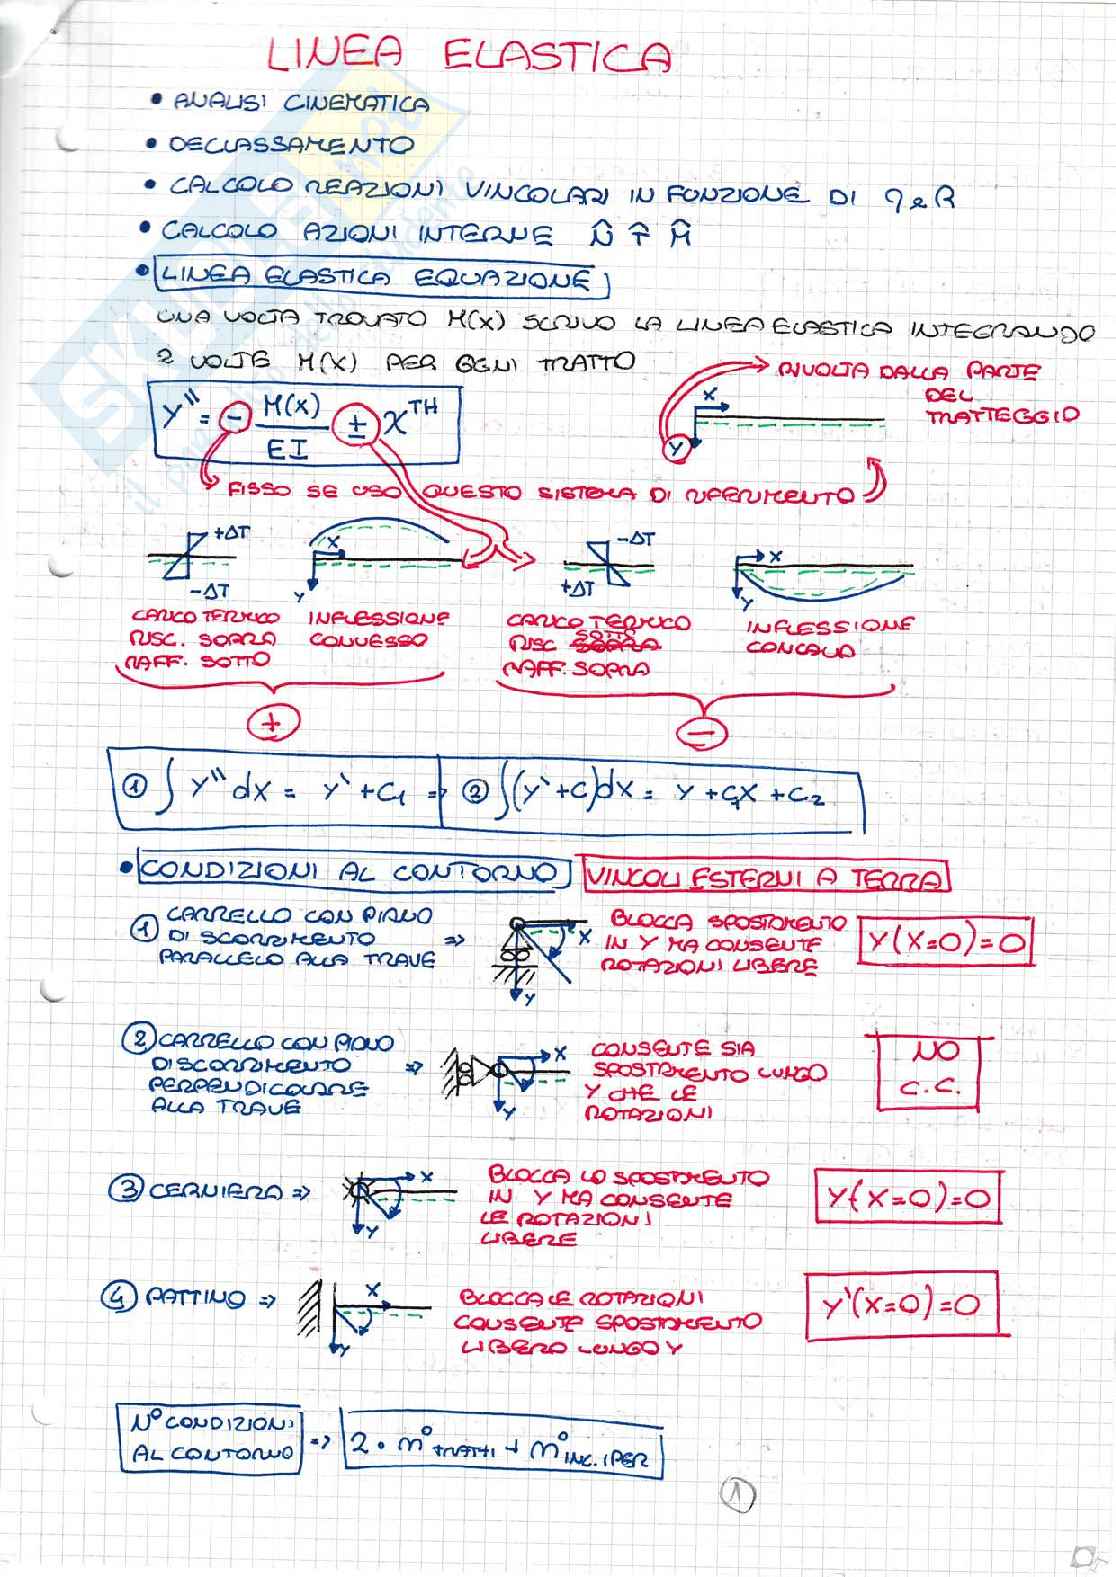 LINEA ELASTICA
• ANALISI CINEMATICA
• DECLASSAMENTO
• CALCOLO REAZIONI VINCOLARI IN FUNZIONE DI q e R
• CALCOLO AZIONI INTERNE N T M
• LINEA ELASTICA EQUAZIONE
UNA VOLTA TROVATO M(X) SCRIVO LA LINEA ELASTICA INTEGRANDO
2 VOLTE M(X) PER OGNI TRATTO
RIVOLTA DALLA PARTE
DEL
TRATTEGGIO
X
Y
Y'' = - M(X)/EI ± X^TH
FISSO SE USO QUESTO SISTEMA DI RIFERIMENTO
+ΔT
-ΔT
X
Y
-ΔT
+ΔT
X
Y
CARICO TERMICO
RISC. SOPRA
RAFF. SOTTO
INFLESSIONE
CONVESSO
CARICO TERMICO
RISC SOTTO
RAFF. SOPRA
INFLESSIONE
CONCAVA
+
-
① ∫ Y'' dX = Y' + C1 ⇒ ② ∫(Y' + C)dX = Y + C1X + C2
• CONDIZIONI AL CONTORNO VINCOLI ESTERNI A TERRA
① CARRELLO CON PIANO
DI SCORRIMENTO
PARALLELO ALLA TRAVE
⇒
X
Y
BLOCCA SPOSTAMENTO
IN Y MA CONSENTE
ROTAZIONI LIBERE
Y(X=0)=0
② CARRELLO CON PIANO
DI SCORRIMENTO
PERPENDICOLARE
ALLA TRAVE
⇒
X
Y
CONSENTE SIA
SPOSTAMENTO LUNGO
Y CHE LE
ROTAZIONI
NO
C.C.
③ CERNIERA ⇒
X
Y
BLOCCA LO SPOSTAMENTO
IN Y MA CONSENTE
LE ROTAZIONI
LIBERE
Y(X=0)=0
④ PATTINO ⇒
X
Y
BLOCCA LE ROTAZIONI
CONSENTE SPOSTAMENTO
LIBERO LUNGO Y
Y'(X=0)=0
N° CONDIZIONI
AL CONTORNO
⇒ 2 • n° TRATTI + n° INC. IPER
1